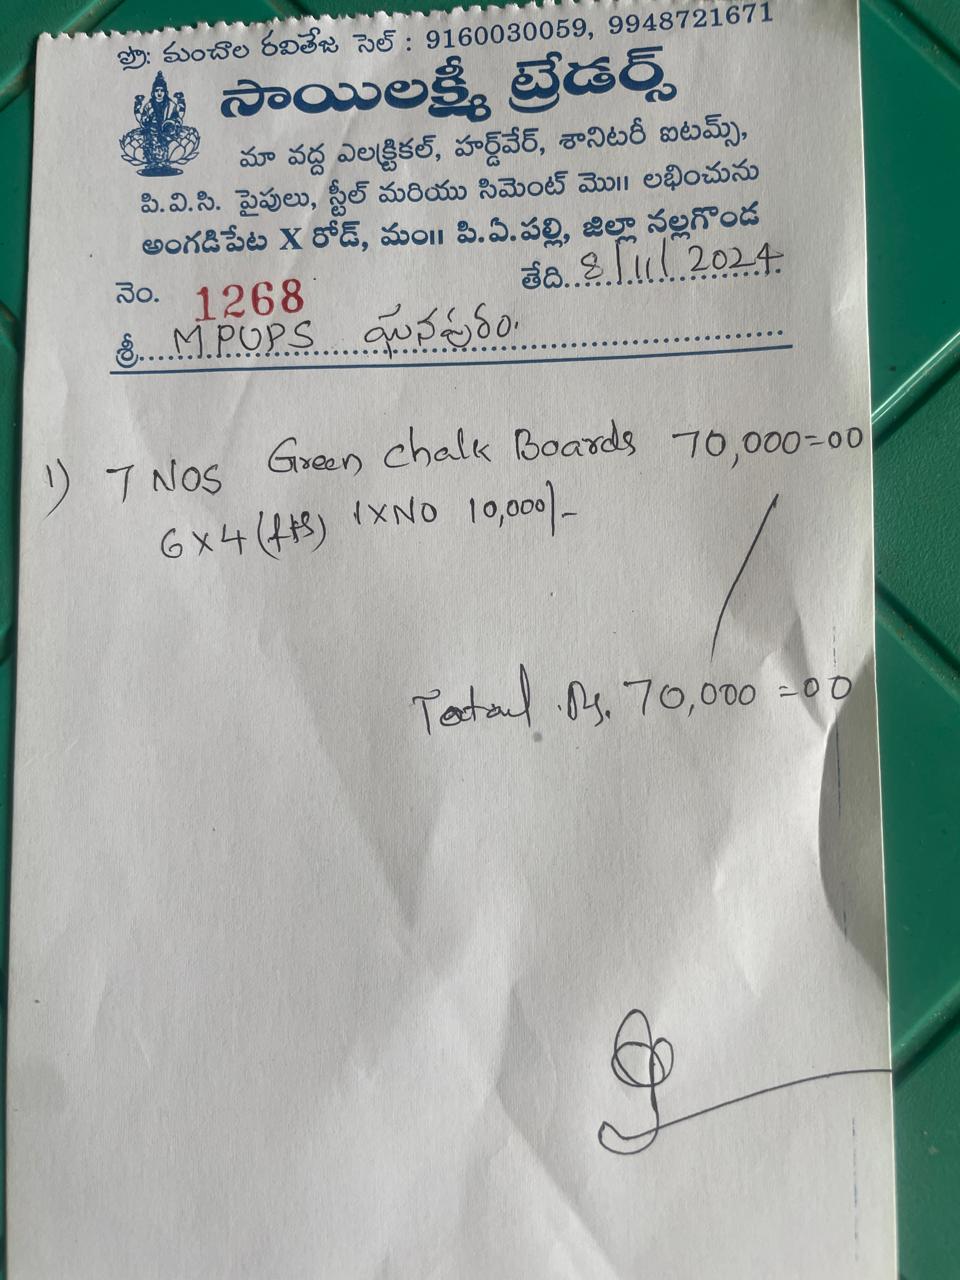 ప్రొ: మంచాల రవితేజ సెల్ : 9160030059, 9948721671
సాయిలక్ష్మీ ట్రేడర్స్
మా వద్ద ఎలక్ట్రికల్, హార్డ్‌వేర్, శానిటరీ ఐటమ్స్,
పి.వి.సి. పైపులు, స్టీల్ మరియు సిమెంట్ మొ॥ లభించును
అంగడిపేట X రోడ్, మం॥ పి.ఏ.పల్లి, జిల్లా నల్లగొండ
నెం. 1268 తేది. 8/11/2024
శ్రీ. M.PUPS ఘనపురం.
1) 7 NOS Green Chalk Boards 70,000=00
6X4 (fts) 1XNO 10,000/-
Total Rs. 70,000=00